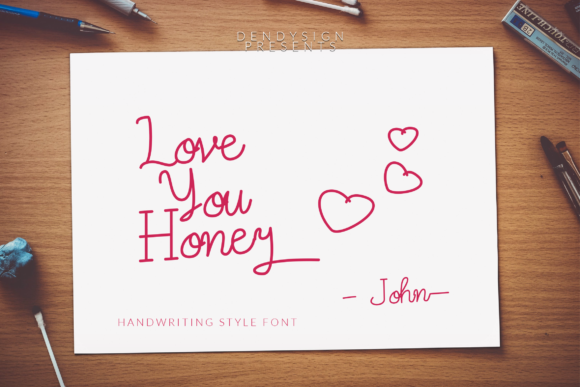 DENDYSIGN
PRESENTS
Love
You
Honey
- John
HANDWRITING STYLE FONT